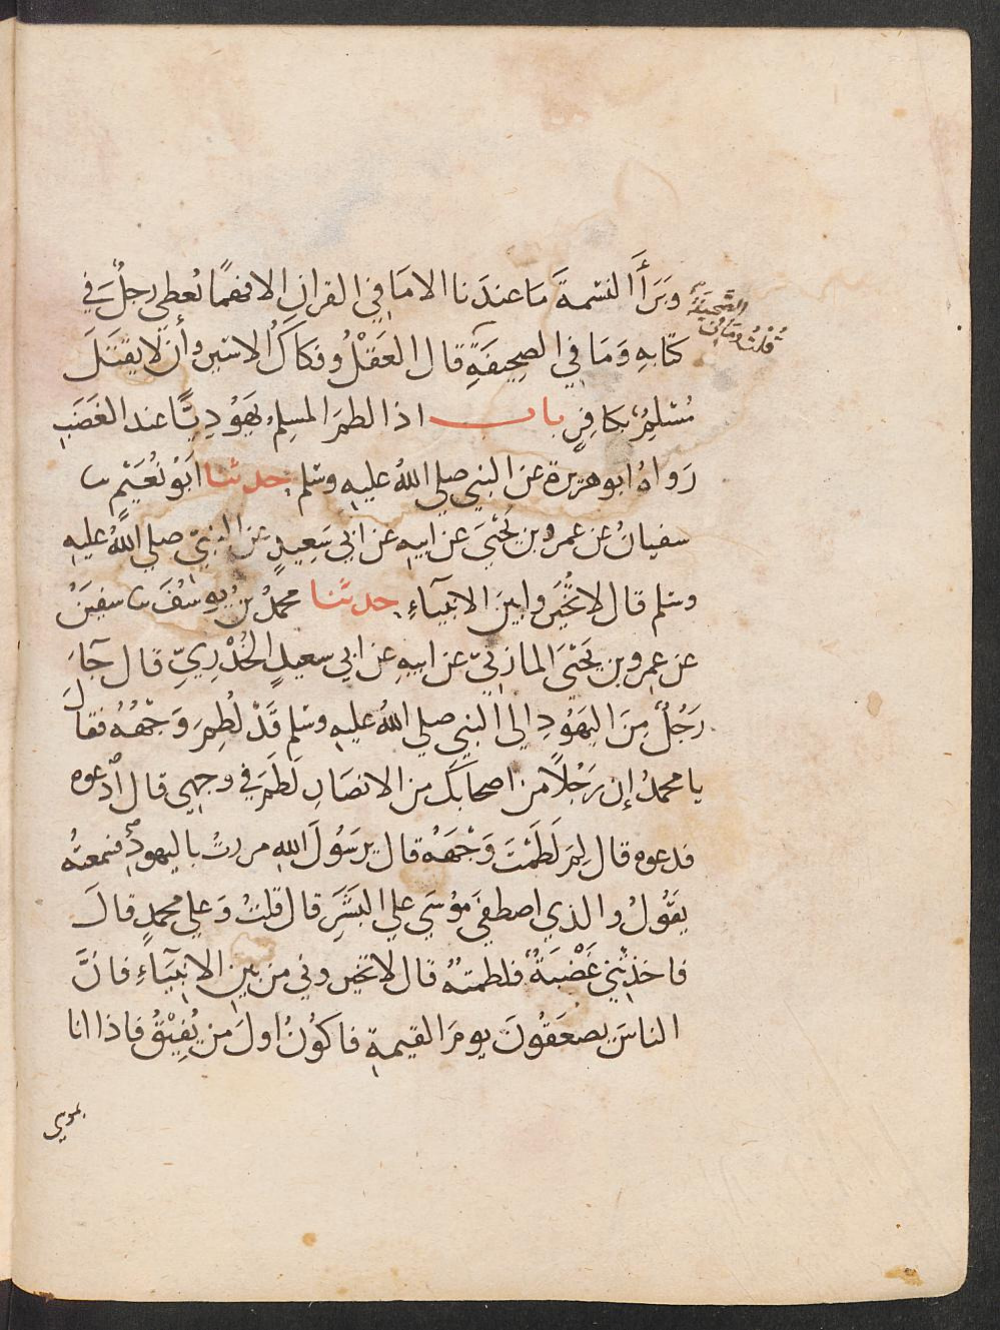 وبَرَأَ النسْمةَ مَا عندَنا الا مَا فِي القرانِ الا فهمًا يُعطى رجلٌ فِي
كتابهِ وَمَا فِي الصحِيفَةِ قال العَقْلُ وفَكاكُ الاسيرِ وأن لَا يقتَلَ
مُسْلِمٌ بكافِرٍ باب اذا لطمَ المسلمُ يَهوديًّا عند الغَضَبِ
رَواهُ ابو هريرة عن النبي صلى اللهُ عليهِ وسَلم حدثنا ابَوُ نُعَيْمٍ ثنا
سفيانُ عن عمرو بن يَحْيَى عَن ابيهِ عن ابي سَعِيدٍ عَن النبيّ صلى اللّٰهُ عليهِ
وسَلم قال لا تخُيّروا بينَ الانبيآءِ حدثنَا محمدُ بنُ يوسُفَ ثنا سفينُ
عن عمرو بن يحَيْىَ المازنيّ عن ابيهِ عن ابي سعيدٍ الخُدْرِيِّ قال جآءَ
رَجُلٌ مِنَ اليَهُودِ الى النبي صلى اللّٰهُ عليهِ وسَلم قَدْ لُطِمَ وَجْهُهُ فقالَ
يا محمدُ إن رَجُلاً من اصحابكَ من الانصَارِ لَطَمَ في وجهِي قال اُدْعوه
فدعوه قال لِمَ لَطَمْتَ وَجْهَهُ قال يرسَوُلَ اللّٰهِ مررتُ باليهودِ فسمعتُه
يقَوُلُ والذي اصطفىَ مَوُسَى على البشَرَِ قال قلتُ وَعلى محمدٍ قالَ
فاخذتْني غَضْبَةٌ فلطمتهُ قال لا تخيروني من بين الانبيآءِ فانَّ
الناسَ يصعَقُونَ يومَ القيمةِ فاكَوُنُ اولَ من يُفِيْقُ فاذا انا
الصَّحِيفةُ
قُلْتُ ومَا فِي
بموسى